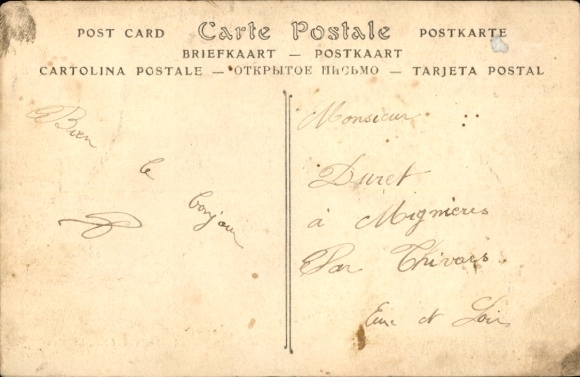 POST CARD Carte Postale POSTKARTE
BRIEFKAART — POSTKAART
CARTOLINA POSTALE — ОТКРЫТОЕ ПИСЬМО — TARJETA POSTAL
Bien
le
bonjour
Monsieur
Duret
à Mignières
Par Thivars
Eure et Loir